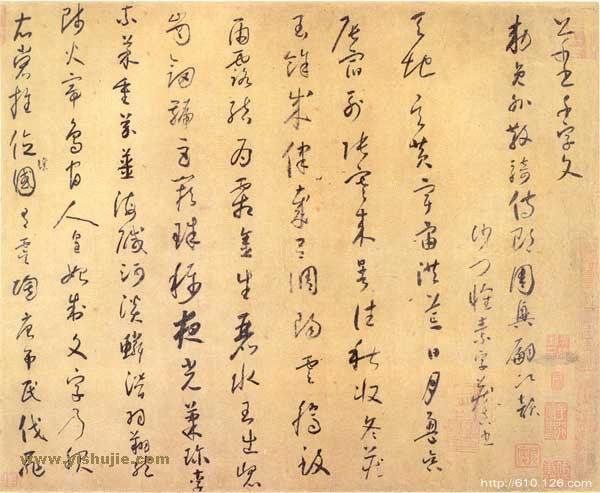 千字文
勅員外散騎侍郎周興嗣次韻
沙門懷素字藏真書
天地玄黃宇宙洪荒日月盈昃
辰宿列張寒來暑往秋收冬藏
閏餘成律歲呂調陽雲騰致
雨露結為霜金生麗水玉出崑
崗劍號巨闕珠稱夜光菓珍李
柰菜重芥薑海鹹河淡鱗潛羽翔龍
師火帝鳥官人皇始制文字乃服
衣裳推位讓國有虞陶唐弔民伐罪
www.yishujie.com
http://610.126.com